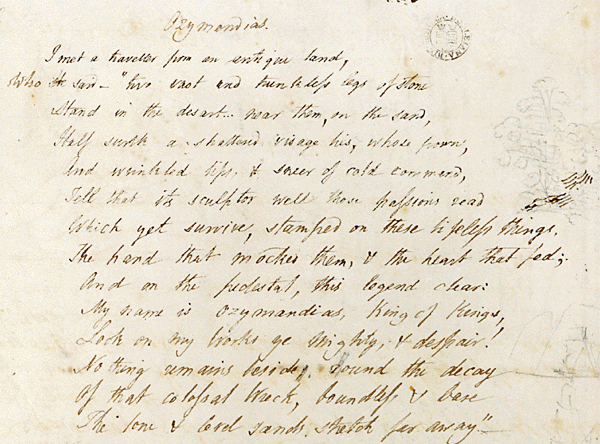 Ozymandias.
I met a traveller from an antique land,
Who said — "two vast and trunkless legs of stone
Stand in the desart.. near them, on the sand,
Half sunk a shattered visage lies, whose frown,
And wrinkled lips, & sneer of cold command,
Tell that its sculptor well those passions read
Which yet survive, stamped on these lifeless things,
The hand that mocked them, & the heart that fed;
And on the pedestal, this legend clear:
My name is Ozymandias, King of Kings,
Look on my Works ye Mighty, & despair!
Nothing remains beside, round the decay
Of that colossal Wreck, boundless & bare
The lone & level sands stretch far away."—